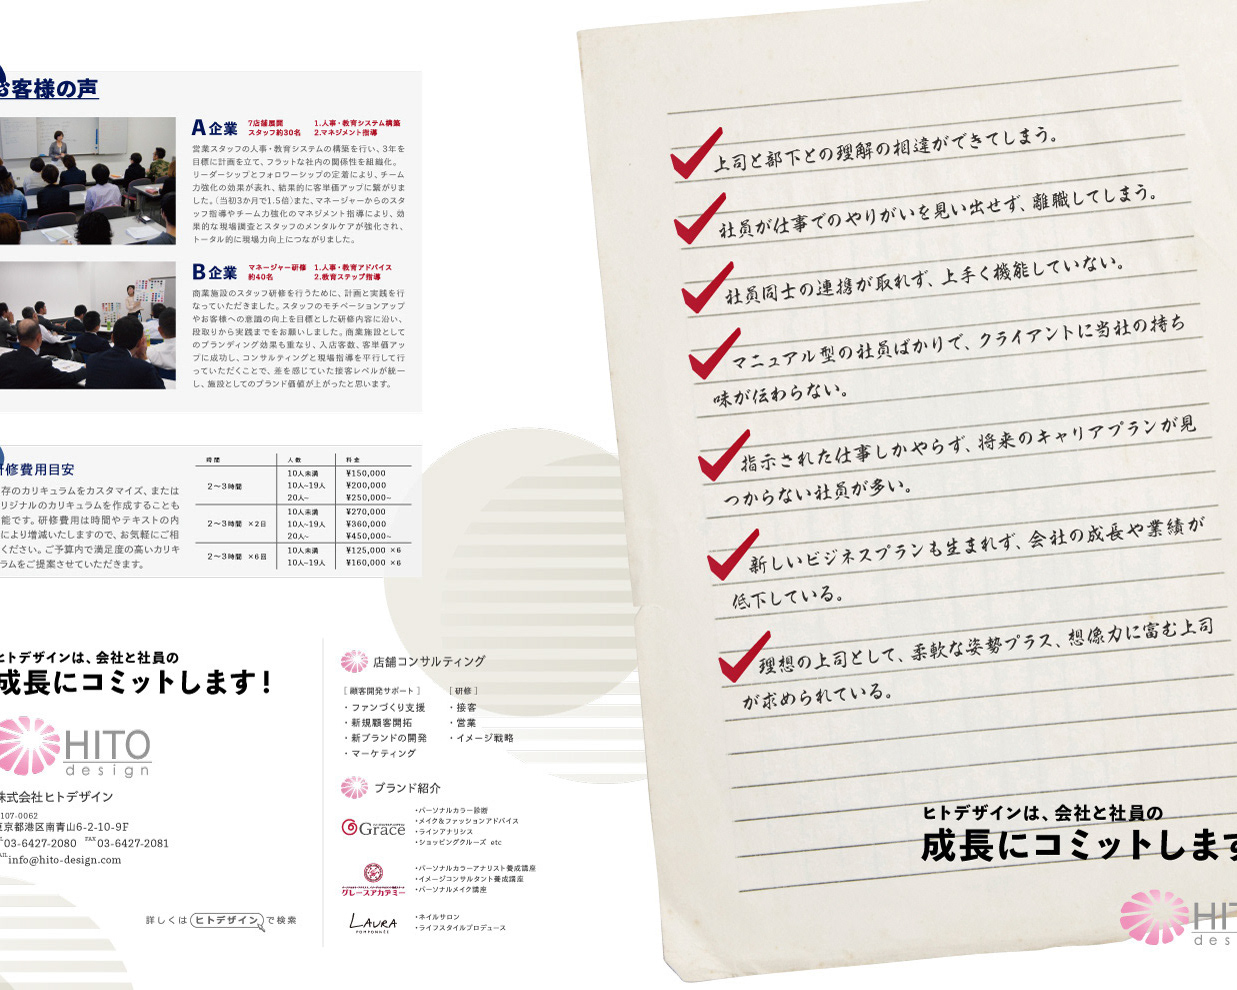 お客様の声
A企業
7店舗展開
スタッフ約30名
1.人事・教育システム構築
2.マネジメント指導
営業スタッフの人事・教育システムの構築を行い、3年を
目標に計画を立て、フラットな社内の関係性を組織化。
リーダーシップとフォロワーシップの定着により、チーム
力強化の効果が表れ、結果的に客単価アップに繋がりま
した。(当初3か月で1.5倍)また、マネージャーからのスタ
ッフ指導やチーム力強化のマネジメント指導により、効
果的な現場調査とスタッフのメンタルケアが強化され、
トータル的に現場力向上につながりました。
B企業
マネージャー研修
約40名
1.人事・教育アドバイス
2.教育ステップ指導
商業施設のスタッフ研修を行うために、計画と実践を行
なっていただきました。スタッフのモチベーションアップ
やお客様への意識の向上を目標とした研修内容に沿い、
段取りから実践までをお願いしました。商業施設として
のブランディング効果も重なり、入店客数、客単価アッ
プに成功し、コンサルティングと現場指導を平行して行
っていただくことで、差を感じていた接客レベルが統一
し、施設としてのブランド価値が上がったと思います。
修費用目安
存のカリキュラムをカスタマイズ、または
リジナルのカリキュラムを作成することも
能です。研修費用は時間やテキストの内
により増減いたしますので、お気軽にご相
ください。ご予算内で満足度の高いカリキ
ラムをご提案させていただきます。
時間 人数 料金
2〜3時間 10人未満 ¥150,000
10人–19人 ¥200,000
20人~ ¥250,000~
2〜3時間 ×2日 10人未満 ¥270,000
10人~19人 ¥360,000
20人~ ¥450,000~
2〜3時間 ×6回 10人未満 ¥125,000 ×6
10人–19人 ¥160,000 ×6
ヒトデザインは、会社と社員の
成長にコミットします!
HITO
design
株式会社ヒトデザイン
107-0062
東京都港区南青山6-2-10-9F
03-6427-2080 FAX 03-6427-2081
info@hito-design.com
詳しくは ヒトデザイン で検索
店舗コンサルティング
[ 顧客開発サポート ]
・ファンづくり支援
・新規顧客開拓
・新ブランドの開発
・マーケティング
[ 研修 ]
・接客
・営業
・イメージ戦略
ブランド紹介
Grace
・パーソナルカラー診断
・メイク&ファッションアドバイス
・ラインアナリシス
・ショッピングクルーズ etc
グレースアカデミー
・パーソナルカラーアナリスト養成講座
・イメージコンサルタント養成講座
・パーソナルメイク講座
LAURA
POMPONNÉE
・ネイルサロン
・ライフスタイルプロデュース
上司と部下との理解の相違ができてしまう。
社員が仕事でのやりがいを見い出せず、離職してしまう。
社員同士の連携が取れず、上手く機能していない。
マニュアル型の社員ばかりで、クライアントに当社の持ち
味が伝わらない。
指示された仕事しかやらず、将来のキャリアプランが見
つからない社員が多い。
新しいビジネスプランも生まれず、会社の成長や業績が
低下している。
理想の上司として、柔軟な姿勢プラス、想像力に富む上司
が求められている。
ヒトデザインは、会社と社員の
成長にコミットします
HIT
des